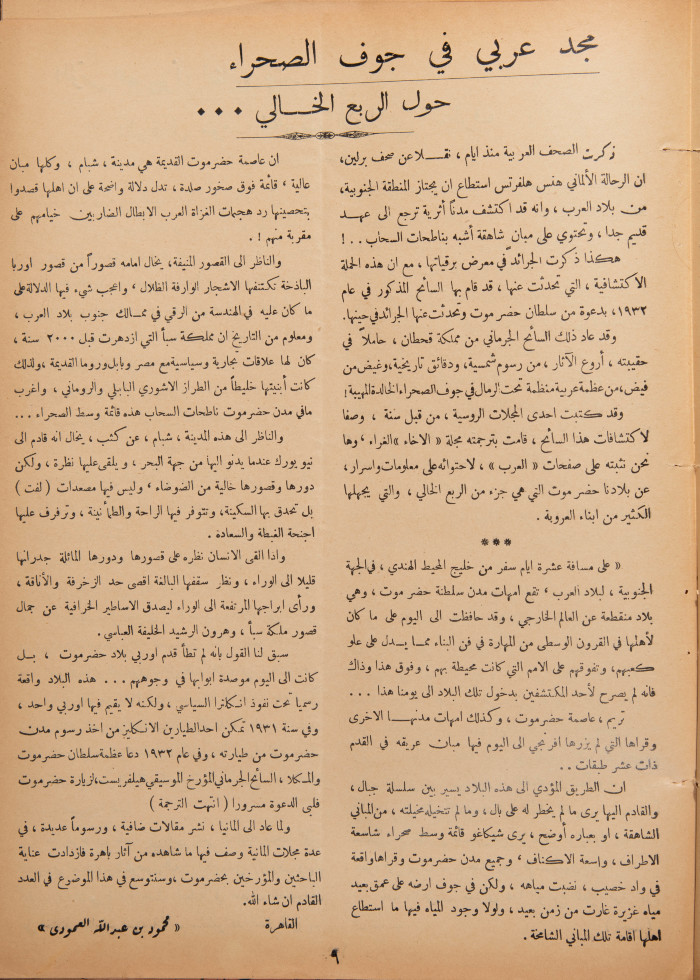 مجد عربي في جوف الصحراء
حول الربع الخالي ...
ذكرت الصحف العربية منذ ايام ، نقلا عن صحف برلين،
ان الرحالة الألماني هنس هلفرتس استطاع ان يجتاز المنطقة الجنوبية،
من بلاد العرب ، وانه قد اكتشف مدناً أثرية ترجع الى عهد
قديم جدا ، وتحتوي على مبان شاهقة أشبه بناطحات السحاب . . !
هكذا ذكرت الجرائد في معرض برقياتها ، مع ان هذه الحملة
الاكتشافية ، التي تحدثت عنها ، قد قام بها السائح المذكور في عام
١٩٣٢، بدعوة من سلطان حضرموت وتحدثت عنها الجرائد في حينها.
وقد عاد ذلك السائح الجرماني من مملكة قحطان ، حاملاً في
حقيبته ، أروع الآثار ، من رسوم شمسية، ودقائق تاريخية، وغيض من
فيض، من عظمة عربية منظمة تحت الرمال في جوف الصحراء الخالدة المهيبة!
وقد كتبت احدى المجلات الروسية ، من قبل سنة ، وصفا
لاكتشافات هذا السائح ، قامت بترجمته مجلة « الاخاء » الغراء ، وها
نحن نثبته على صفحات « العرب » ، لاحتوائه على معلومات واسرار،
عن بلادنا حضر موت التي هي جزء من الربع الخالي ، والتي يجهلها
الكثير من ابناء العروبة .
***
« على مسافة عشرة ايام سفر من خليج المحيط الهندي ، في الجهة
الجنوبية ، لبلاد العرب ، تقع امهات مدن سلطنة حضر موت ، وهي
بلاد منقطعة عن العالم الخارجي ، وقد حافظت الى اليوم على ما كان
لأهلها في القرون الوسطى من المهارة في فن البناء مما يدل على علو
كعبهم، وتفوقهم على الامم التي كانت محيطة بهم ، وفوق هذا وذاك
فانه لم يصرح لأحد المكتشفين بدخول تلك البلاد الى يومنا هذا ...
تريم ، عاصمة حضرموت ، وكذلك امهات مدنها الاخرى
وقراها التي لم يزرها افرنجي الى اليوم فيها مبان عريقه في القدم
ذات عشر طبقات . .
ان الطريق المؤدي الى هذه البلاد يسير بين سلسلة جبال ،
والقادم اليها يرى ما لم يخطر له على بال، وما لم تتخيله مخيلته ، من المباني
الشاهقة ، او بعباره أوضح ، يرى شيكاغو قائمة وسط صحراء شاسعة
الاطراف ، واسعة الاكناف ، وجميع مدن حضرموت وقراها واقعة
في واد خصيب ، نضبت مياهه ، ولكن في جوف ارضه على عمق بعيد
مياه غزيرة غارت من زمن بعيد ، ولولا وجود المياه فيها ما استطاع
اهلها اقامة تلك المباني الشامخة .
ان عاصمة حضرموت القديمة هي مدينة ، شبام ، وكلها مبان
عالية ، قائمة فوق صخور صلدة ، تدل دلالة واضحة على ان اهلها قصدوا
بتحصينها رد هجمات الغزاة العرب الابطال الضاربين خيامهم على
مقربة منهم ! .
والناظر الى القصور المنيفة، يخال امامه قصوراً من قصور اوربا
الباذخة تكتنفها الاشجار الوارفة الظلال ، واعجب شيء فيها الدلالة على
ما كان عليه في الهندسة من الرقي في ممالك جنوب بلاد العرب ،
ومعلوم من التاريخ ان مملكة سبأ التي ازدهرت قبل ٢٠٠٠ سنة ،
كان لها علاقات تجارية وسياسية مع مصر وبابل وروما القديمة ، ولذلك
كانت أبنيتها خليطاً من الطراز الاشوري البابلي والروماني ، واغرب
ما في مدن حضرموت ناطحات السحاب هذه قائمة وسط الصحراء ...
والناظر الى هذه المدينة ، شبام ، عن كثب ، يخال انه قادم الى
نيو يورك عندما يدنو اليها من جهة البحر ، ويلقى عليها نظرة ، ولكن
دورها وقصورها خالية من الضوضاء ، وليس فيها مصعدات ( لفت )
بل تحدق بها السكينة، وتتوفر فيها الراحة والطمأنينة ، وترفرف عليها
اجنحة الغبطة والسعادة .
واذا القى الانسان نظره على قصورها ودورها الماثلة جدرانها
قليلا الى الوراء ، ونظر سقفها البالغة اقصى حد الزخرفة والأناقة ،
ورأى ابراجها المرتفعة الى الوراء ليصدق الاساطير الخرافية عن جمال
قصور ملكة سبأ ، وهرون الرشيد الخليفة العباسي .
سبق لنا القول بانه لم تطأ قدم اوربي بلاد حضرموت ، بل
كانت الى اليوم موصدة ابوابها في وجوههم ... هذه البلاد واقعة
رسميا تحت نفوذ انكلترا السياسي ، ولكنه لا يقيم فيها اوربي واحد ،
وفي سنة ١٩٣١ تمكن احد الطيارين الانكليز من اخذ رسوم مدن
حضرموت من طيارته ، وفي عام ١٩٣٢ دعا عظمة سلطان حضرموت
والمكلا ، السائح الجرماني المؤرخ الموسيقي هيلفريست، لزيارة حضرموت
فلبى الدعوة مسرورا ( انتهت الترجمة )
ولما عاد الى المانيا ، نشر مقالات ضافية ، ورسوماً عديدة ، في
عدة مجلات المانية وصف فيها ما شاهده من آثار باهرة فازدادت عناية
الباحثين والمؤرخين بحضرموت ، وسنتوسع في هذا الموضوع في العدد
القادم ان شاء الله.
القاهرة « محمود بن عبدالله العمودى »
٩